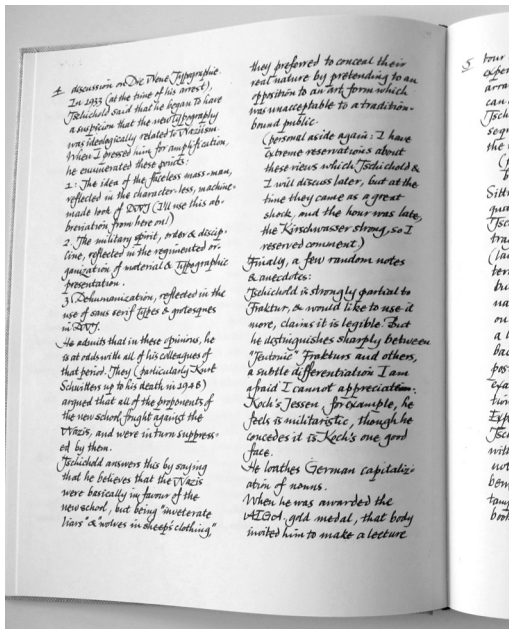 4 discussion on Die Neue Typographie.
In 1933 (at the time of his arrest),
Tschichold said that he began to have
a suspicion that the new typography
was ideologically related to Naziism.
When I pressed him for amplification,
he enumerated these points:
1: The idea of the faceless mass-man,
reflected in the character-less, machine-
made look of DNT (I'll use this ab-
breviation from here on!)
2. The military spirit, order & discip-
line, reflected in the regimented or-
ganization of material & Typographic
presentation.
3 Dehumanization, reflected in the
use of sans serif types & grotesques
in DNT.
He admits that in these opinions, he
is at odds with all of his colleagues of
that period. They (particularly Kurt
Schwitters up to his death in 1948)
argued that all of the proponents of
the new school fought against the
Nazis, and were in turn suppress-
ed by them.
Tschichold answers this by saying
that he believes that the Nazis
were basically in favour of the
new school, but being "inveterate
liars" & "wolves in sheep's clothing,"
they preferred to conceal their
real nature by pretending to an
opposition to an art form which
was unacceptable to a tradition-
bound public.
(personal aside again: I have
extreme reservations about
these views which Tschichold &
I will discuss later, but at the
time they came as a great
shock, and the hour was late,
the Kirschwasser strong, so I
reserved comment.)
Finally, a few random notes
& anecdotes:
Tschichold is strongly partial to
Fraktur, & would like to use it
more, claims it is legible. But
he distinguishes sharply between
"Teutonic" Frakturs and others,
a subtle differentiation I am
afraid I cannot appreciation.
Koch's Jessen, for example, he
feels is militaristic, though he
concedes it is Koch's one good
face.
He loathes German capitaliz-
ation of nouns.
When he was awarded the
AIGA gold medal, that body
invited him to make a lecture
5 tour